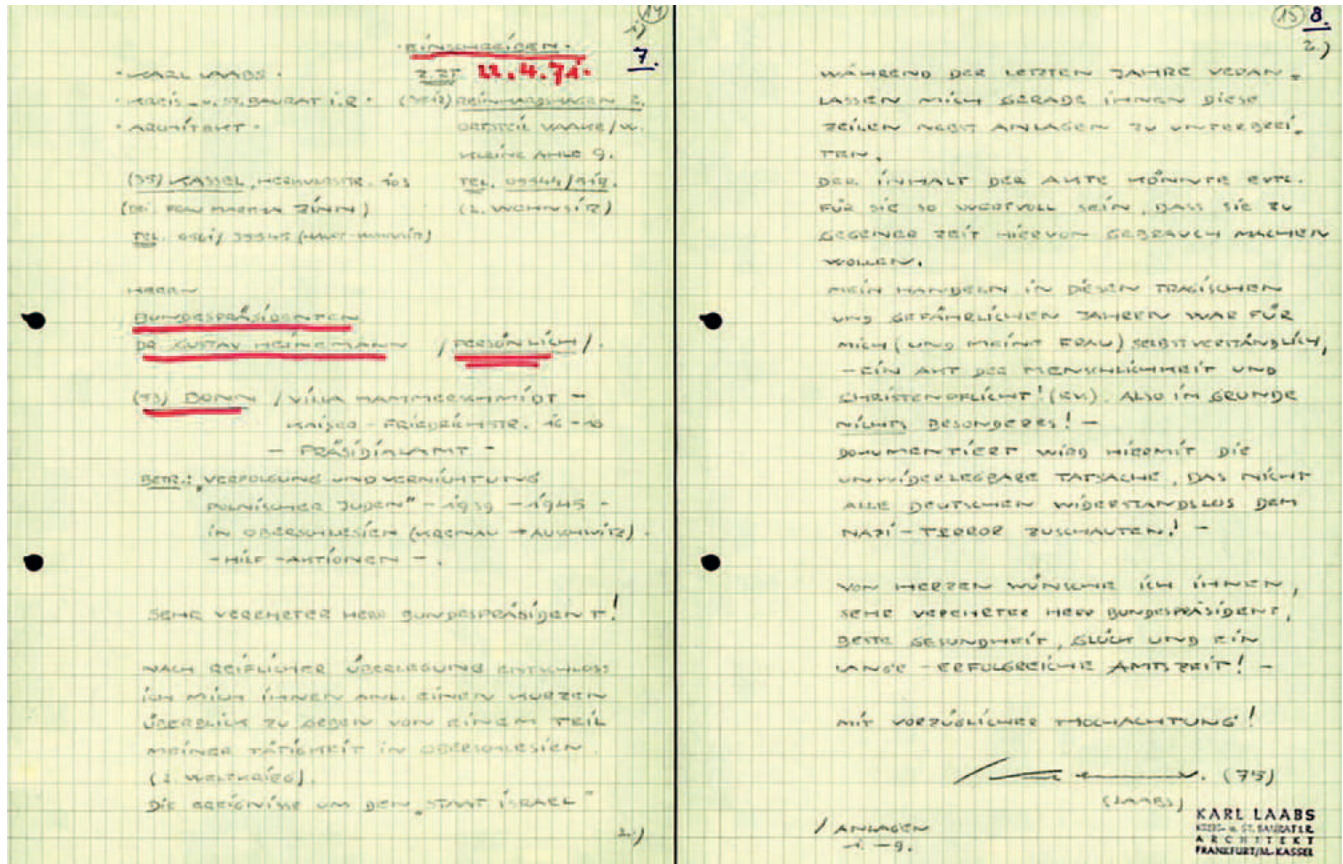 14
1)
7.
· EINSCHREIBEN ·
· KARL LAABS ·
Z.ZT. 22.4.71.
· KREIS- u. ST. BAURAT i.R. ·
(3512) REINHARDSHAGEN 2.
· ARCHITEKT ·
ORTSTEIL VAAKE/W.
KLEINE AHLE 9.
(35) KASSEL, HERKULESSTR. 103
TEL. 05544/919.
(BEI FRAU MARTHA ZINN)
(2. WOHNSITZ)
TEL. 0561/ (HAUPT-WOHNSITZ)
HERRN
BUNDESPRÄSIDENTEN
DR. GUSTAV HEINEMANN / PERSÖNLICH /.
(53) BONN / VILLA HAMMERSCHMIDT -
KAISER - FRIEDRICHSTR. 16 - 18
- PRÄSIDIALAMT -
BETR.: „VERFOLGUNG UND VERNICHTUNG
POLNISCHER JUDEN" - 1939 - 1945 -
IN OBERSCHLESIEN (KRENAU → AUSCHWITZ).
- HILF - AKTIONEN -.
SEHR VEREHRTER HERR BUNDESPRÄSIDENT!
NACH REIFLICHER ÜBERLEGUNG ENTSCHLOSS
ICH MICH IHNEN ANL. EINEN KURZEN
ÜBERBLICK ZU GEBEN VON EINEM TEIL
MEINER TÄTIGKEIT IN OBERSCHLESIEN.
(2. WELTKRIEG).
DIE EREIGNISSE UM DEN „STAAT ISRAEL"
2.)
15
8.
2.)
WÄHREND DER LETZTEN JAHRE VERAN-
LASSEN MICH GERADE IHNEN DIESE
ZEILEN NEBST ANLAGEN ZU UNTERBREI-
TEN.
DER INHALT DER AKTE KÖNNTE EVTL.
FÜR SIE SO WERTVOLL SEIN, DASS SIE ZU
GEGEBNER ZEIT HIERVON GEBRAUCH MACHEN
WOLLEN.
MEIN HANDELN IN DIESEN TRAGISCHEN
UND GEFÄHRLICHEN JAHREN WAR FÜR
MICH (UND MEINE FRAU) SELBSTVERSTÄNDLICH,
- EIN AKT DER MENSCHLICHKEIT UND
CHRISTENPFLICHT! (EV.). ALSO IM GRUNDE
NICHTS BESONDERES! -
DOKUMENTIERT WIRD HIERMIT DIE
UNWIDERLEGBARE TATSACHE, DAS NICHT
ALLE DEUTSCHEN WIDERSTANDSLOS DEM
NAZI - TERROR ZUSCHAUTEN! -
VON HERZEN WÜNSCHE ICH IHNEN,
SEHR VEREHRTER HERR BUNDESPRÄSIDENT,
BESTE GESUNDHEIT, GLÜCK UND EIN
LANGE - ERFOLGREICHE AMTSZEIT! -
MIT VORZÜGLICHER HOCHACHTUNG!
(75)
(LAABS)
/ ANLAGEN
1. - 9.
KARL LAABS
KREIS- u. ST. BAURAT i.R.
ARCHITEKT
FRANKFURT/M.-KASSEL